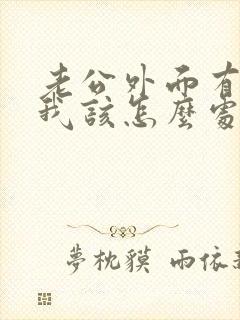 老公外面有
我該怎麼處
夢枕貘 雨依